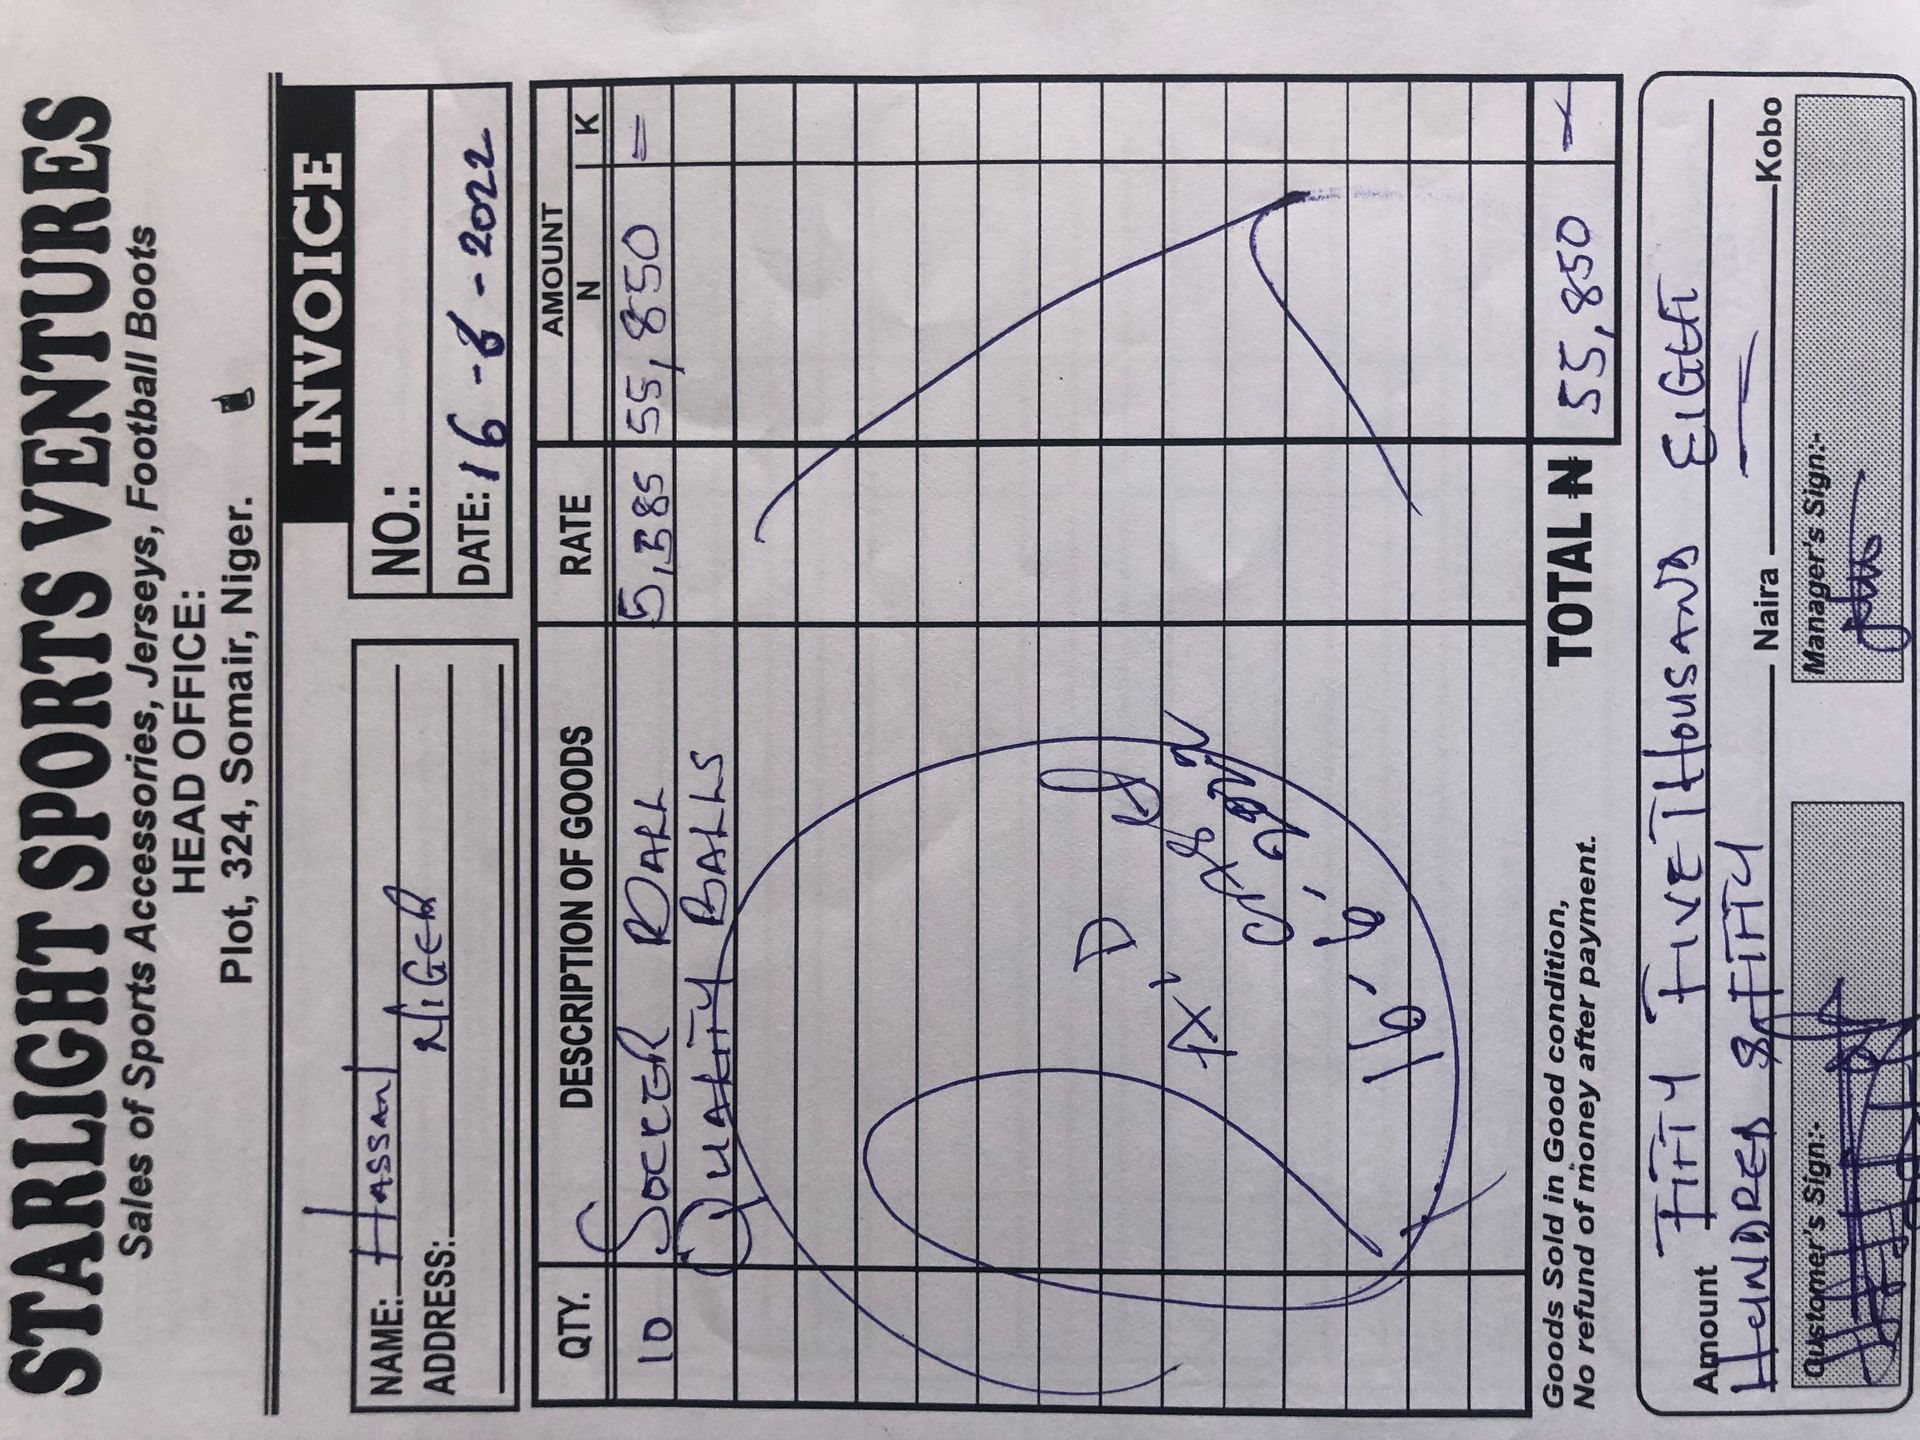 STARLIGHT SPORTS VENTURES
Sales of Sports Accessories, Jerseys, Football Boots
HEAD OFFICE:
Plot, 324, Somair, Niger.
INVOICE
NAME: HASSAN
ADDRESS: NIGER
NO.:
DATE: 16-8-2022
QTY. DESCRIPTION OF GOODS RATE AMOUNT
N K
10 SOCCER BALL 5,585 55,850 =
QUALITY BALLS
16,
TOTAL N 55,850
Goods Sold in Good condition,
No refund of money after payment.
Amount FIFTY FIVE THOUSAND EIGHT
HUNDRED & FIFTY Naira Kobo
Customer's Sign:- Manager's Sign:-